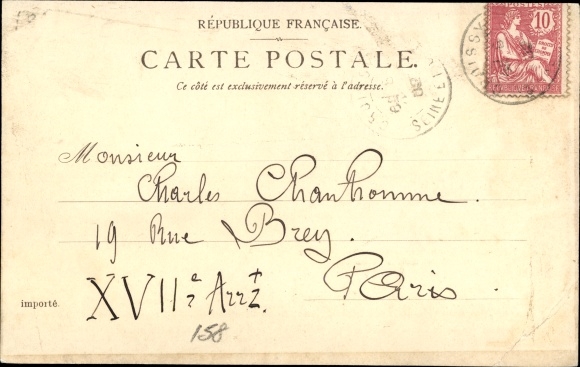 RÉPUBLIQUE FRANÇAISE.
CARTE POSTALE.
Ce côté est exclusivement réservé à l'adresse.
POSTES
10
REPUBLIQUE FRANÇAISE
SEINE ET
Monsieur
Charles Chanthomme.
19 Rue Brey.
Paris.
XVIIe Arrt.
importé.
158